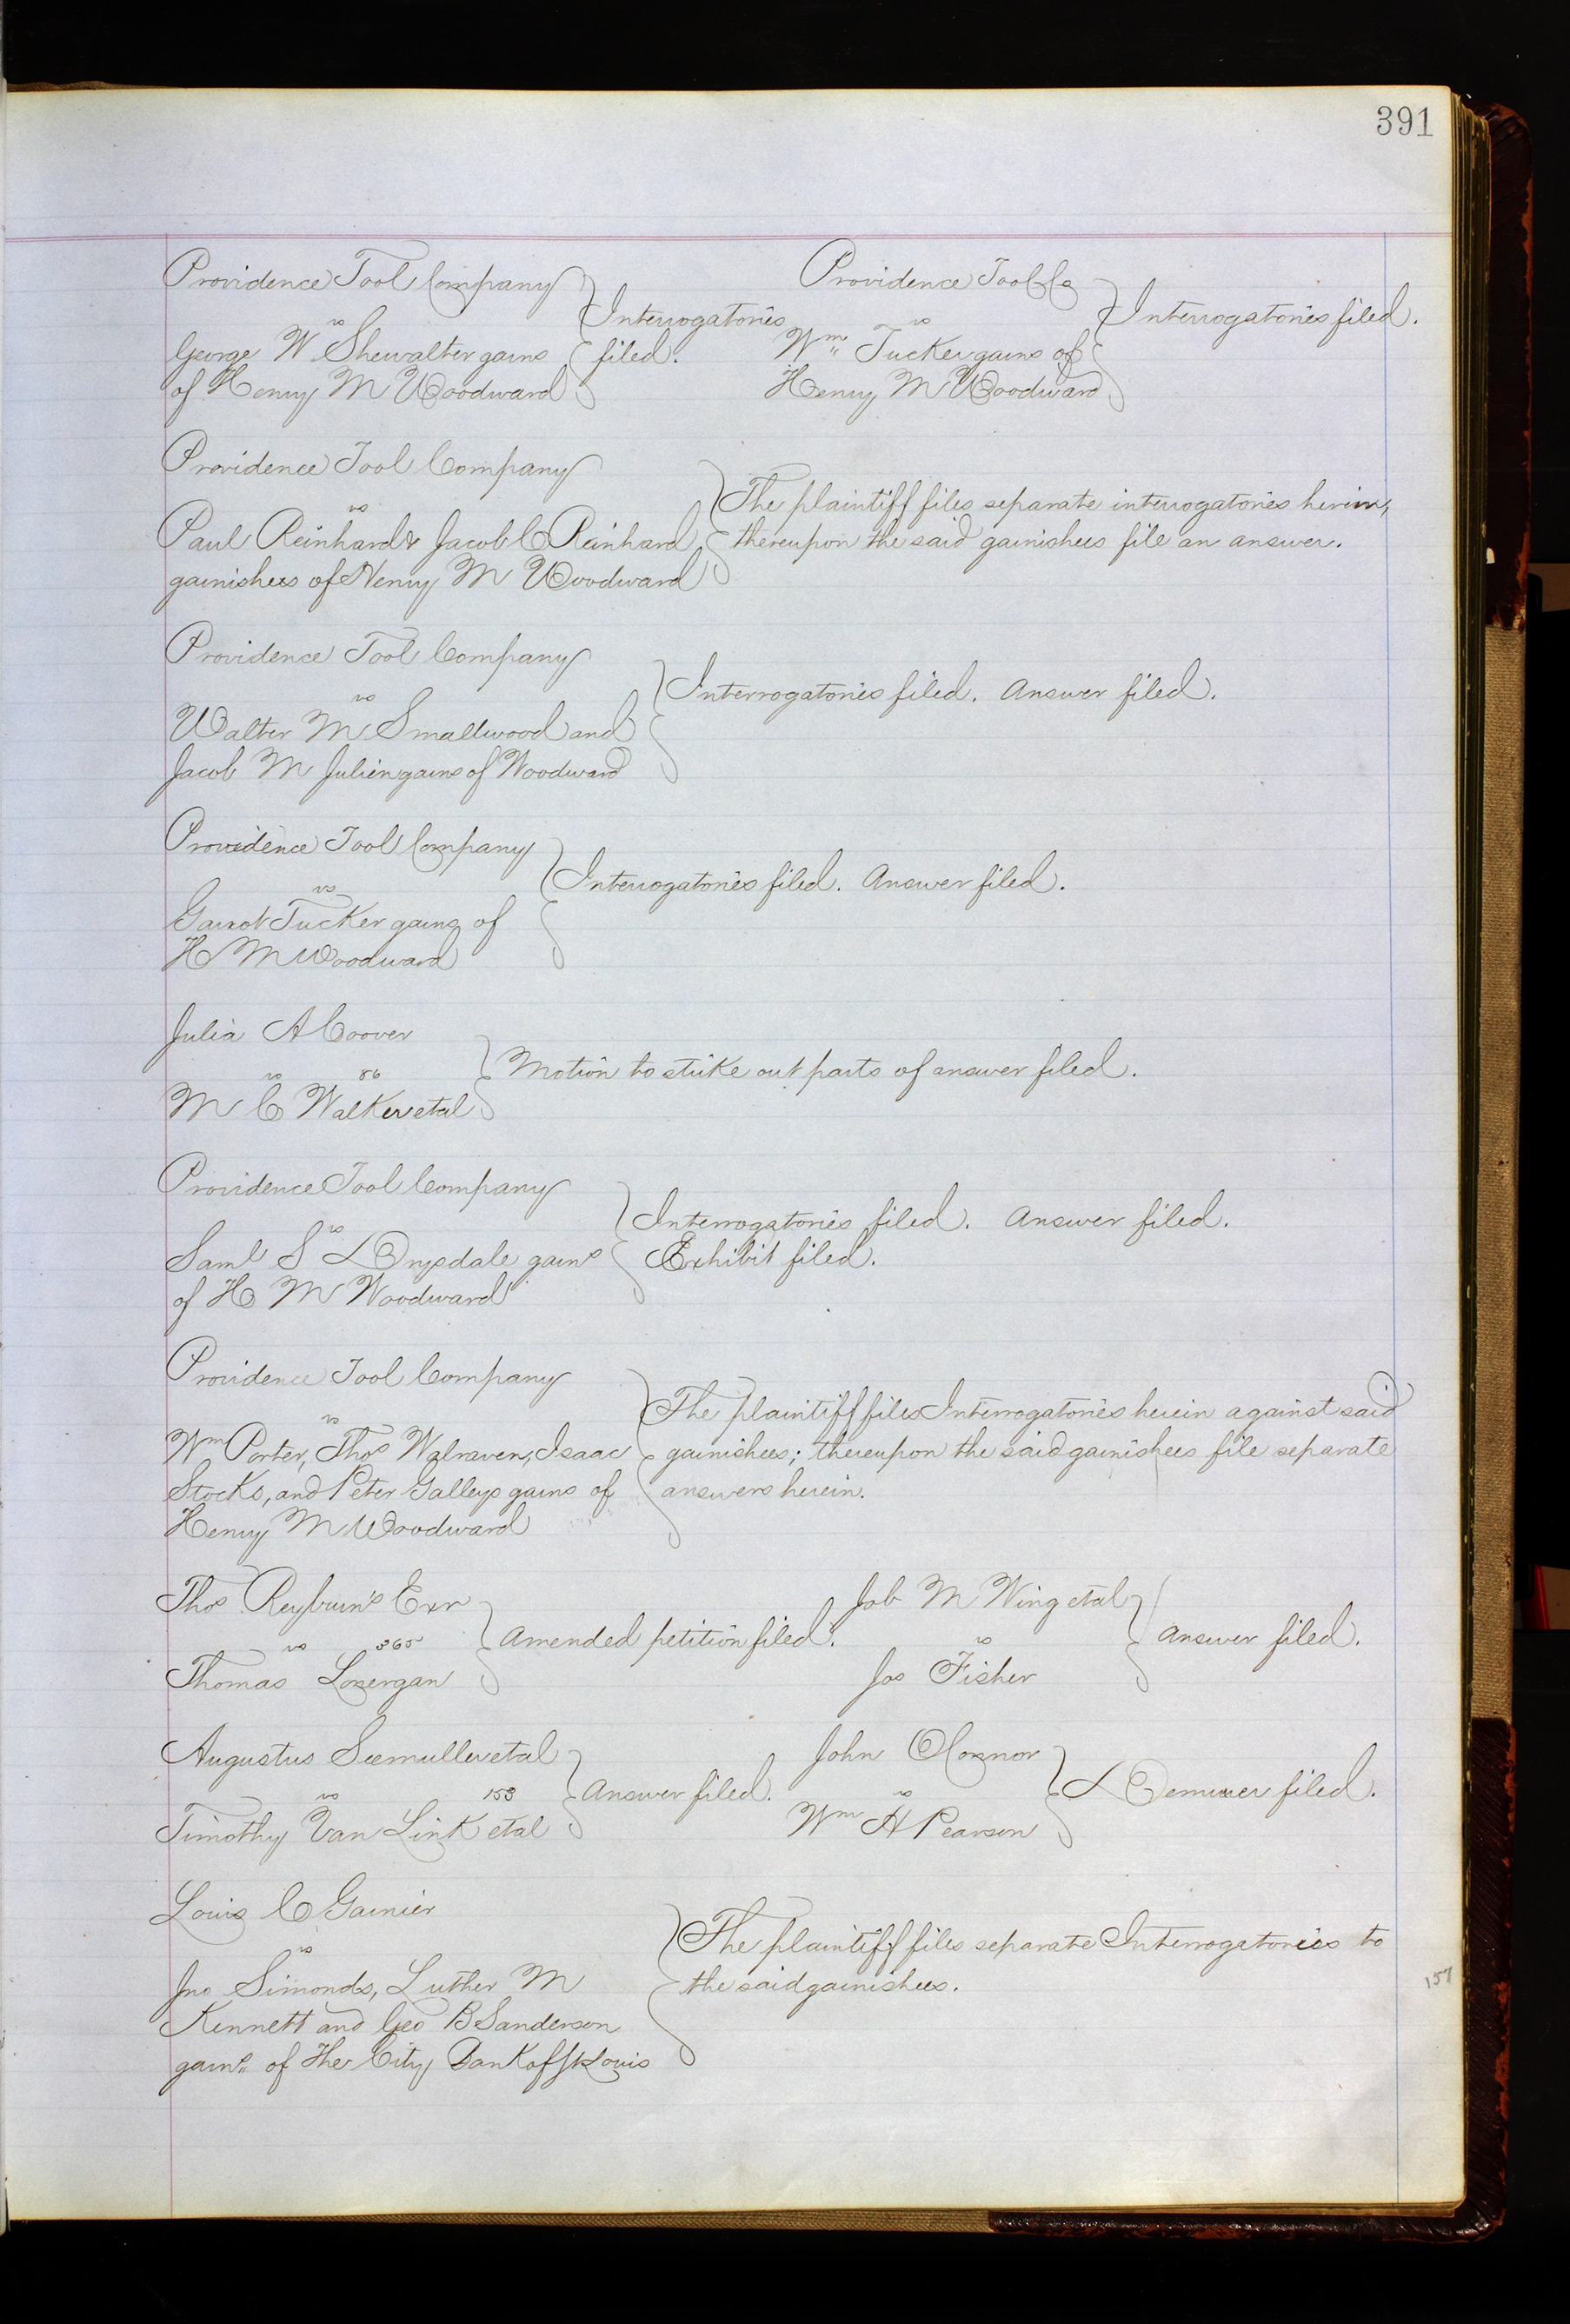 391
Providence Tool Company
vs
George W Shewalter garns
of Henry M Woodward
Interrogatories
filed.
Providence Tool Co
vs
Wm Tucker garns of
Henry M Woodward
Interrogatories filed.
Providence Tool Company
vs
Paul Reinhard & Jacob C Reinhard
garnishees of Henry M Woodward
The plaintiff files separate interrogatories herein,
thereupon the said garnishees file an answer.
Providence Tool Company
vs
Walter M Smallwood and
Jacob M Julien garns of Woodward
Interrogatories filed. Answer filed.
Providence Tool Company
vs
Garrot Tucker garns of
H M Woodward
Interrogatories filed. Answer filed.
Julia A Coover
vs 86
M C Walker etal
Motion to strike out parts of answer filed.
Providence Tool Company
vs
Saml S Drysdale garns
of H M Woodward
Interrogatories filed. Answer filed.
Exhibit filed.
Providence Tool Company
vs
Wm Porter, Thos Walraven, Isaac
Stocks, and Peter Galleys garns of
Henry M Woodward
The plaintiff files Interrogatories herein against said
garnishees; thereupon the said garnishees file separate
answers herein.
Thos Reyburn's Exr
vs 365
Thomas Lonergan
Amended petition filed.
Job M Wing etal
vs
Jos Fisher
Answer filed.
Augustus Seemuller etal
vs 153
Timothy Van Link etal
Answer filed.
John OConnor
vs
Wm A Pearson
Demurrer filed.
Louis C Garnier
vs
Jno Simonds, Luther M
Kennett and Geo B Sanderson
garns of The City Bank of St Louis
The plaintiff files separate Interrogatories to
the said garnishees.
157